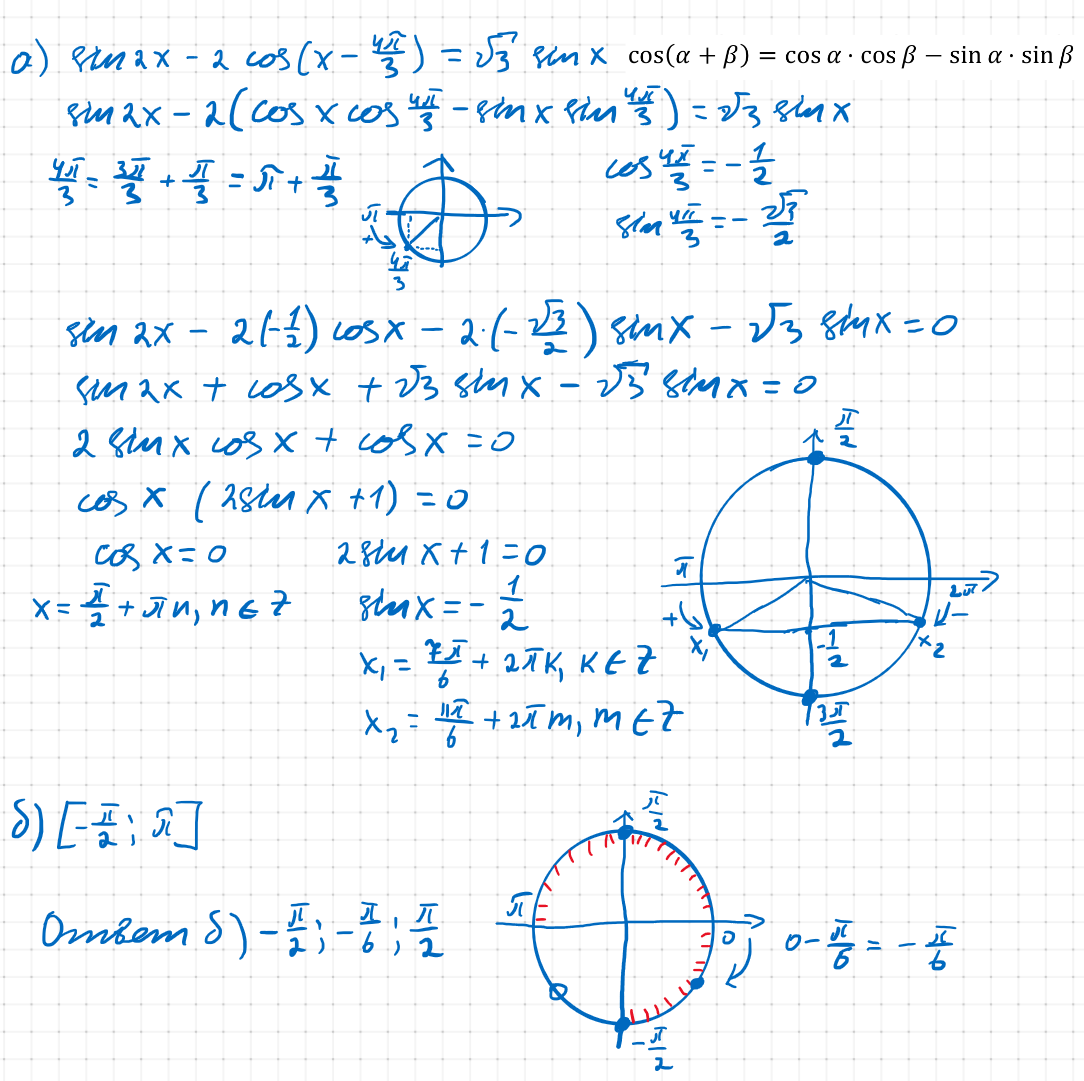 а) sin 2x − 2 cos(x − 4π/3) = √3 sin x cos(α + β) = cos α · cos β − sin α · sin β
sin 2x − 2(cos x cos 4π/3 − sin x sin 4π/3) = √3 sin x
4π/3 = 3π/3 + π/3 = π + π/3
cos 4π/3 = − 1/2
sin 4π/3 = − √3/2
π
+
4π/3
sin 2x − 2(−1/2) cos x − 2·(−√3/2) sin x − √3 sin x = 0
sin 2x + cos x + √3 sin x − √3 sin x = 0
2 sin x cos x + cos x = 0
cos x (2 sin x + 1) = 0
cos x = 0 2 sin x + 1 = 0
x = π/2 + πn, n ∈ Z sin x = − 1/2
x₁ = 7π/6 + 2πk, k ∈ Z
x₂ = 11π/6 + 2πm, m ∈ Z
π/2
π 2π
+ −
x₁ −1/2 x₂
3π/2
б) [−π/2; π]
Ответ б) −π/2; −π/6; π/2
π/2
π 0
−π/2
0 − π/6 = − π/6